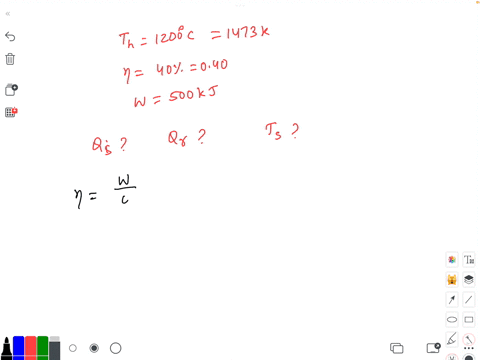 Th = 1200°C = 1473 K
η = 40% = 0.40
W = 500 kJ
Qs ? Qr ? Ts ?
η = W / C